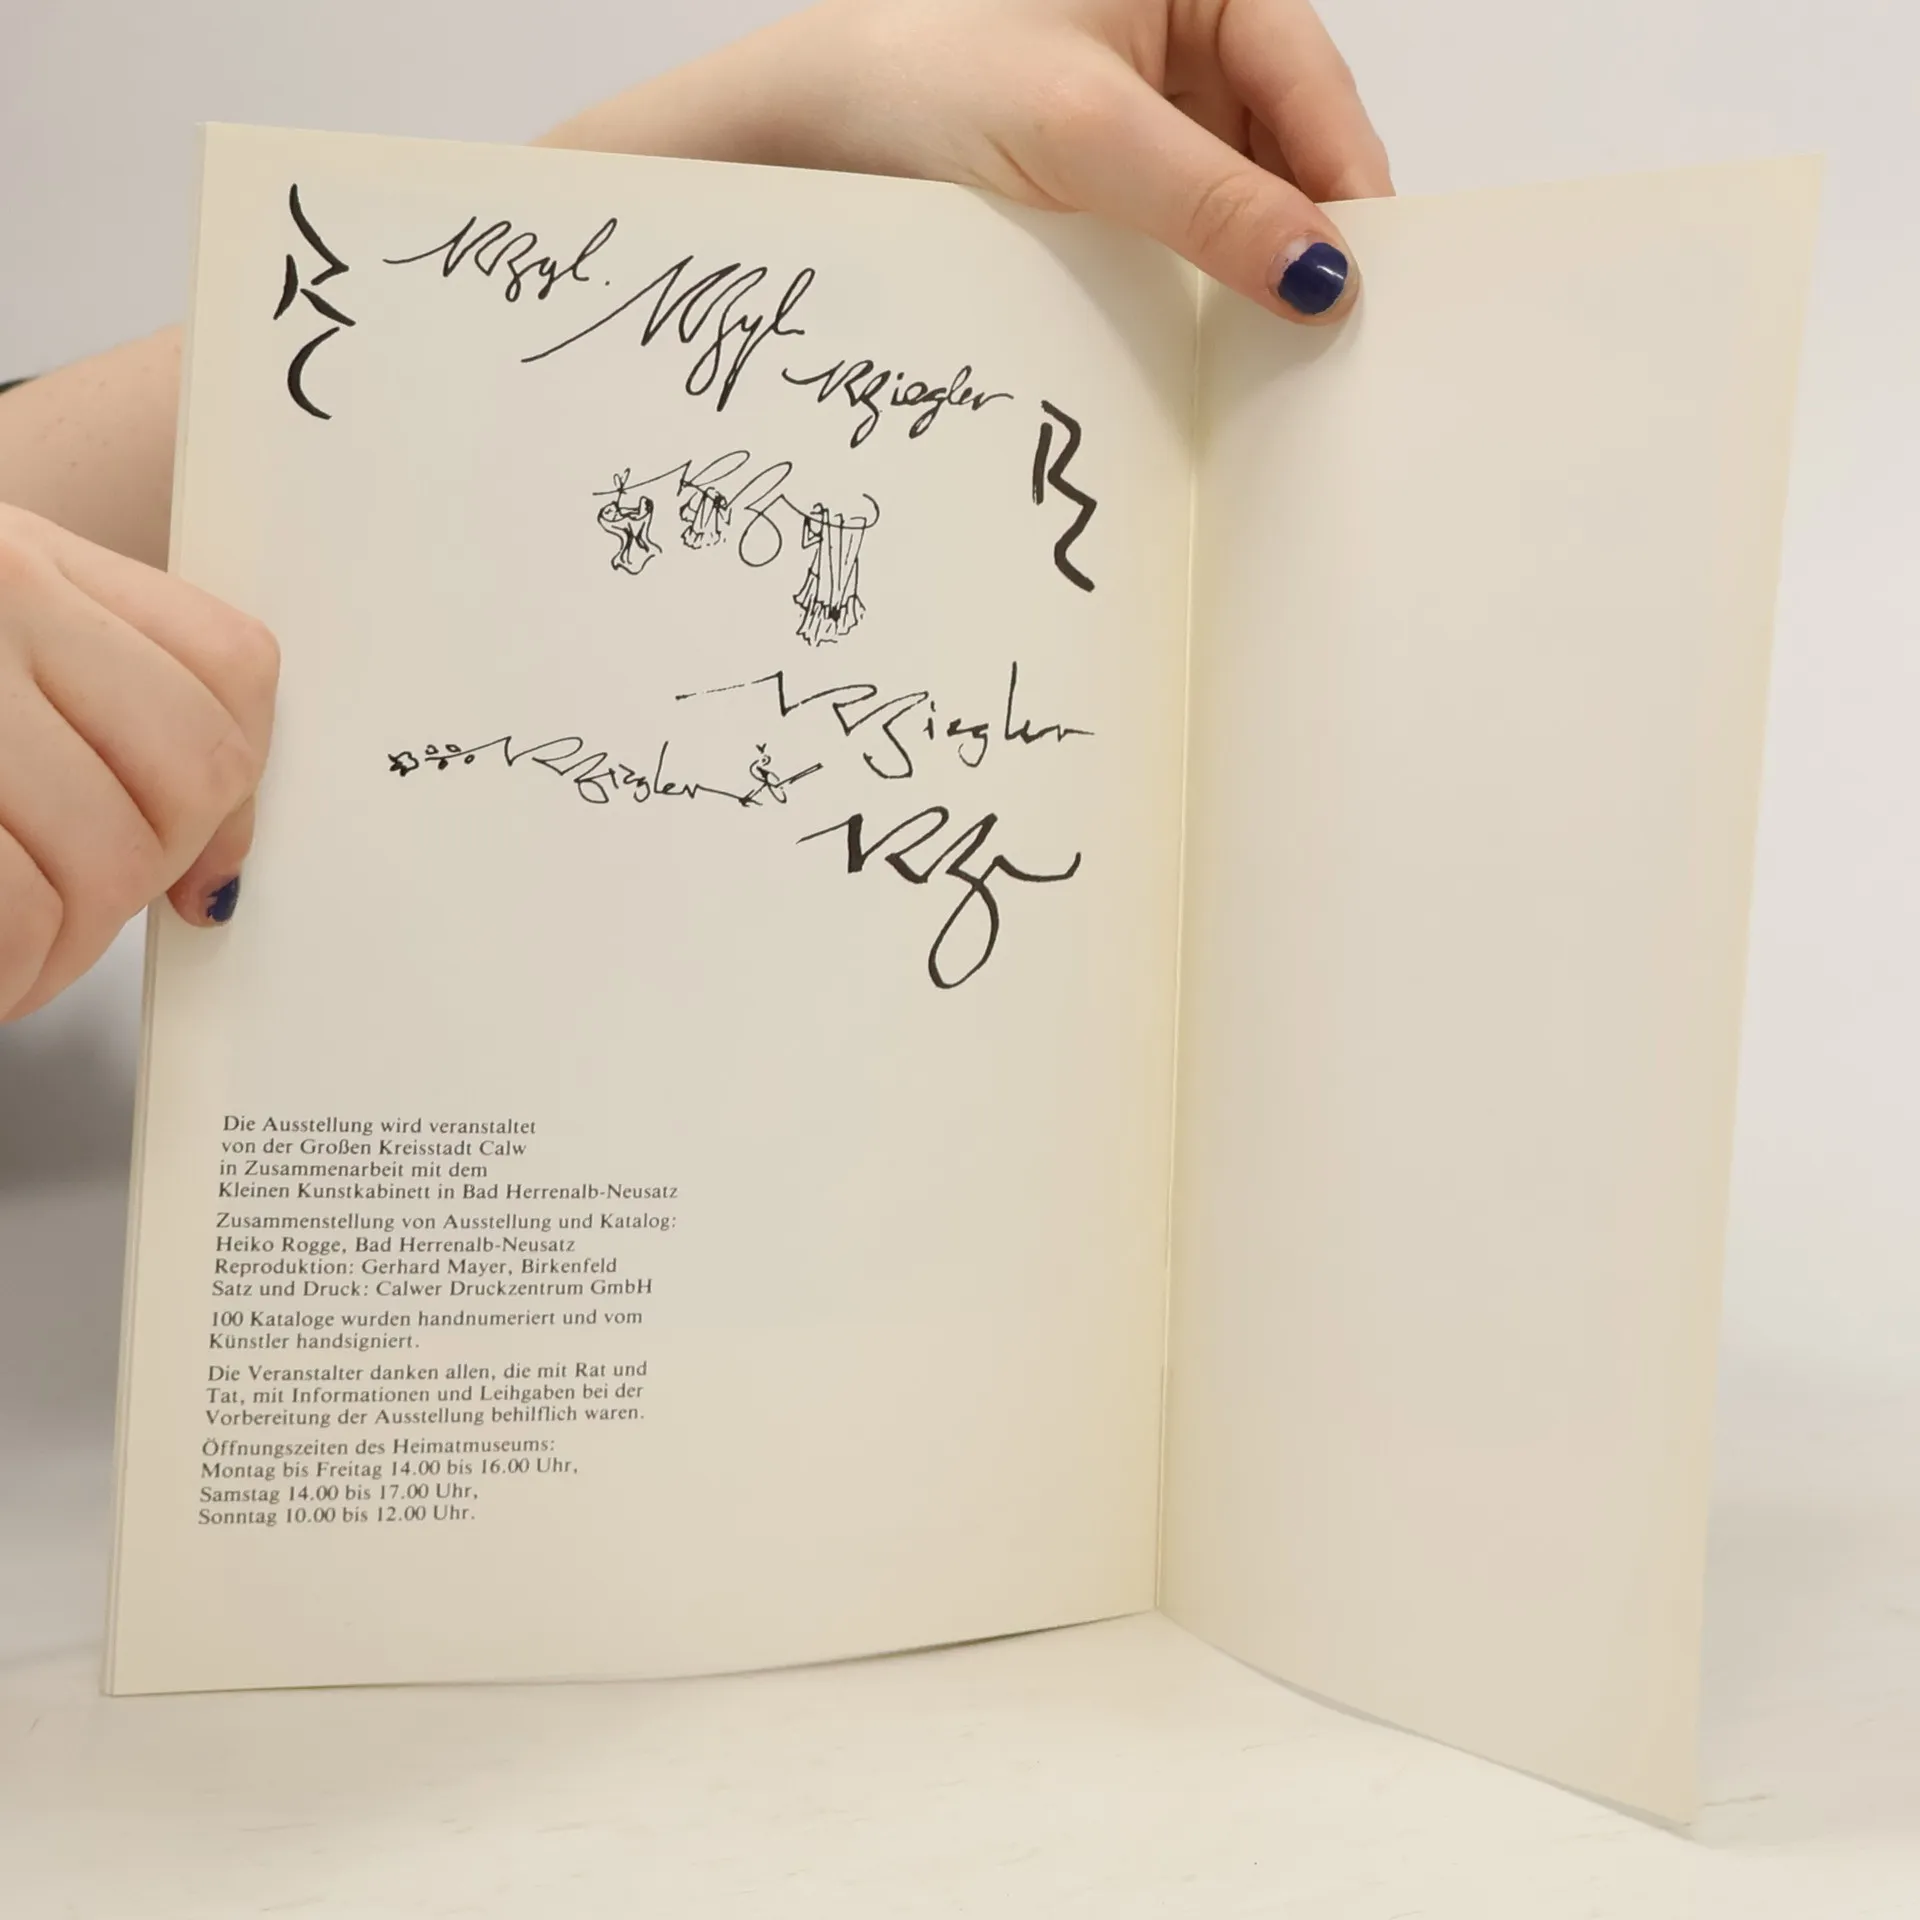 RZgl.
RZgl
RZiegler
RZ
RZ
RZiegler
RZiegler
RZ
Die Ausstellung wird veranstaltet
von der Großen Kreisstadt Calw
in Zusammenarbeit mit dem
Kleinen Kunstkabinett in Bad Herrenalb-Neusatz
Zusammenstellung von Ausstellung und Katalog:
Heiko Rogge, Bad Herrenalb-Neusatz
Reproduktion: Gerhard Mayer, Birkenfeld
Satz und Druck: Calwer Druckzentrum GmbH
100 Kataloge wurden handnumeriert und vom
Künstler handsigniert.
Die Veranstalter danken allen, die mit Rat und
Tat, mit Informationen und Leihgaben bei der
Vorbereitung der Ausstellung behilflich waren.
Öffnungszeiten des Heimatmuseums:
Montag bis Freitag 14.00 bis 16.00 Uhr,
Samstag 14.00 bis 17.00 Uhr,
Sonntag 10.00 bis 12.00 Uhr.